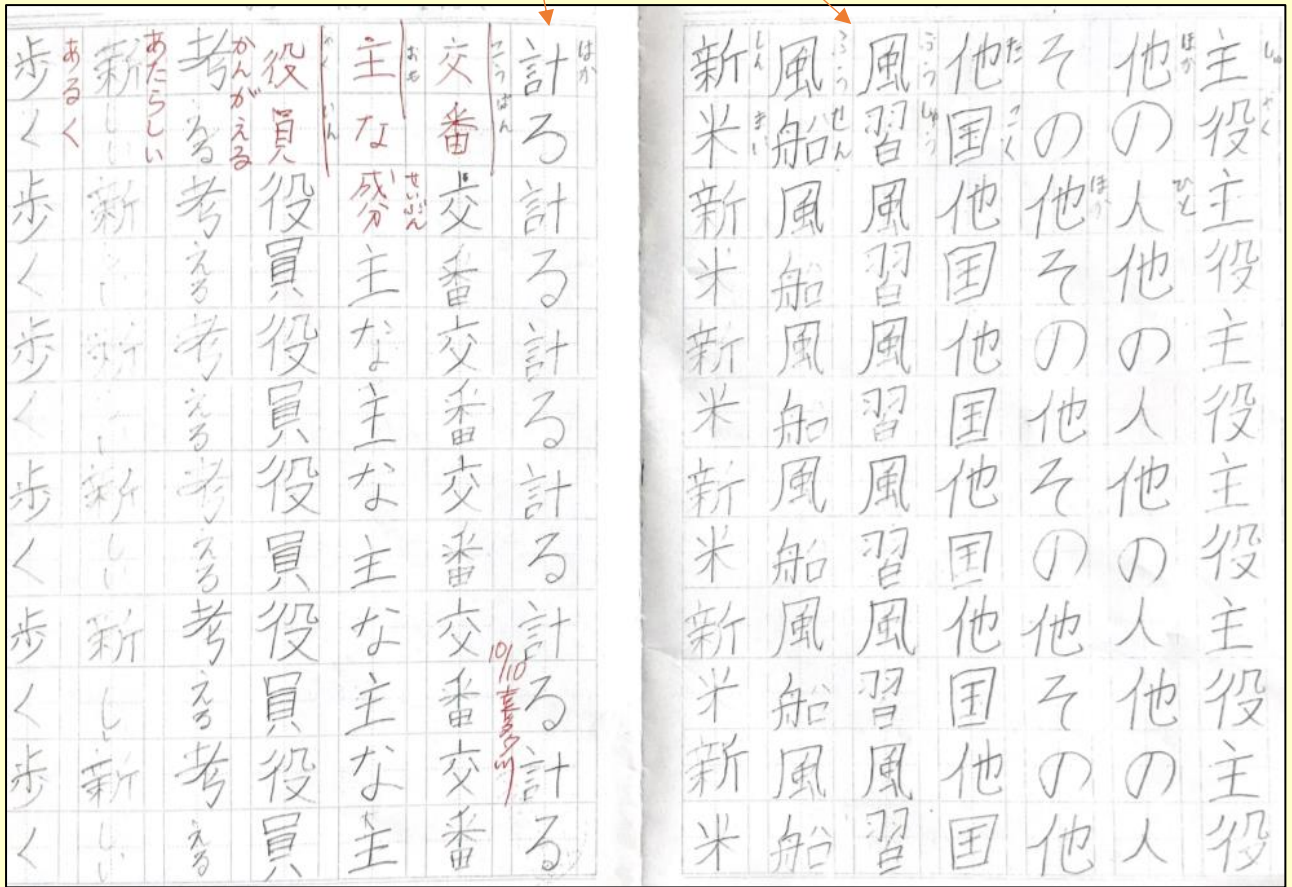 しゅやく
主役主役主役主役主役主役
ほか ひと
他の人他の人他の人他の人
ほか
その他その他その他その他
たこく
他国他国他国他国他国他国
ふうしゅう
風習風習風習風習風習風習
ふうせん
風船風船風船風船風船風船
しんまい
新米新米新米新米新米新米
はか
計る計る計る計る計る計る
10/10 喜多川
こうばん
交番交番交番交番交番交番
おも せいぶん
主な成分主な主な主な主な主
やくいん
役員役員役員役員役員役員
かんがえる
考える考える考える考える考える考える
あたらしい
新しい新しい新しい新しい新しい新しい
あるく
歩く歩く歩く歩く歩く歩く